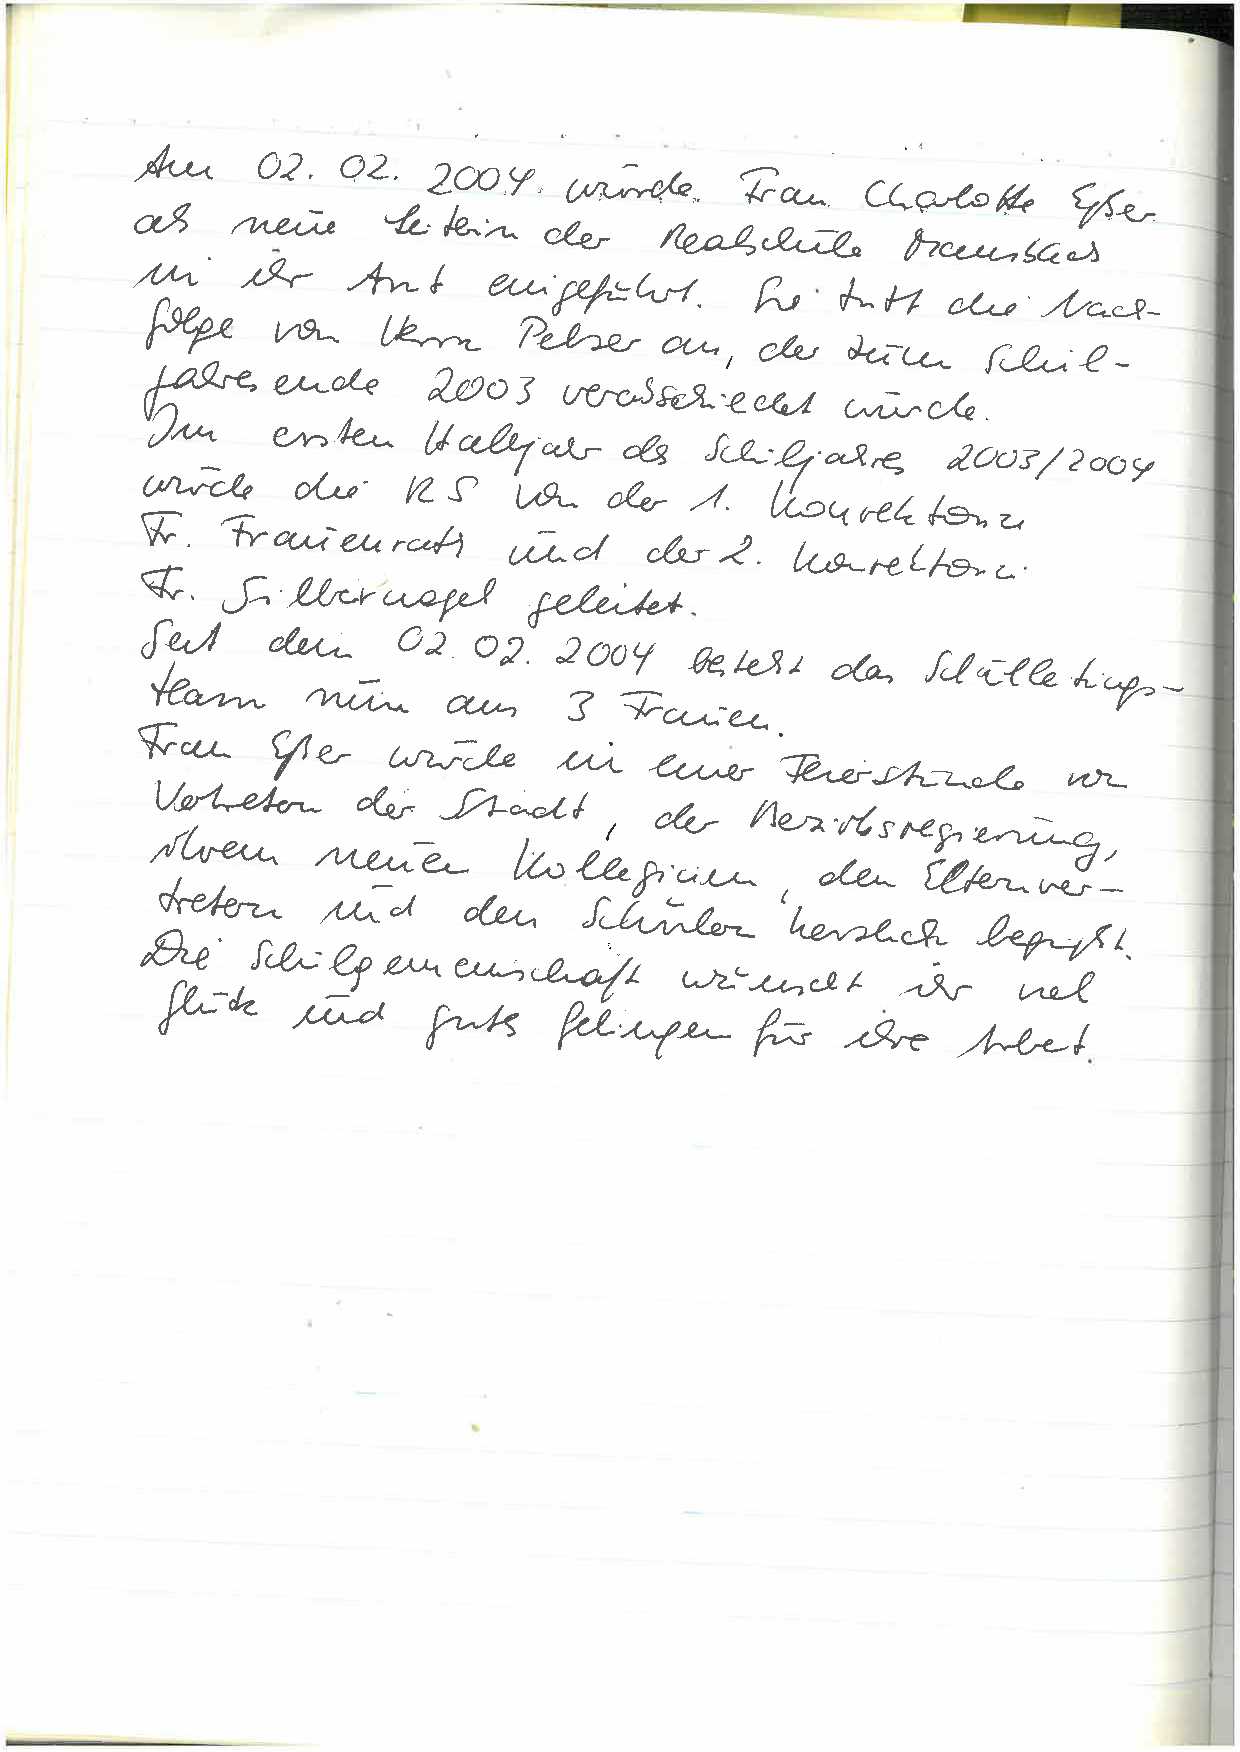 Am 02. 02. 2004 wurde Frau Charlotte Eßer
als neue Leiterin der Realschule
in ihr Amt eingeführt. Sie tritt die Nach-
folge von Herrn Pelzer an, der zum Schul-
jahresende 2003 verabschiedet wurde.
Im ersten Halbjahr des Schuljahres 2003/2004
wurde die RS von der 1. Konrektorin
Fr. Frauenrath und der 2. Konrektorin
Fr. Silbernagel geleitet.
Seit dem 02.02. 2004 besteht das Schulleitungs-
team nun aus 3 Frauen.
Frau Eßer wurde in einer Feierstunde von
Vertretern der Stadt, der Bezirksregierung,
ihrem neuen Kollegium, den Elternver-
tretern und den Schülern herzlich begrüßt.
Die Schulgemeinschaft wünscht ihr viel
Glück und gutes Gelingen für ihre Arbeit.